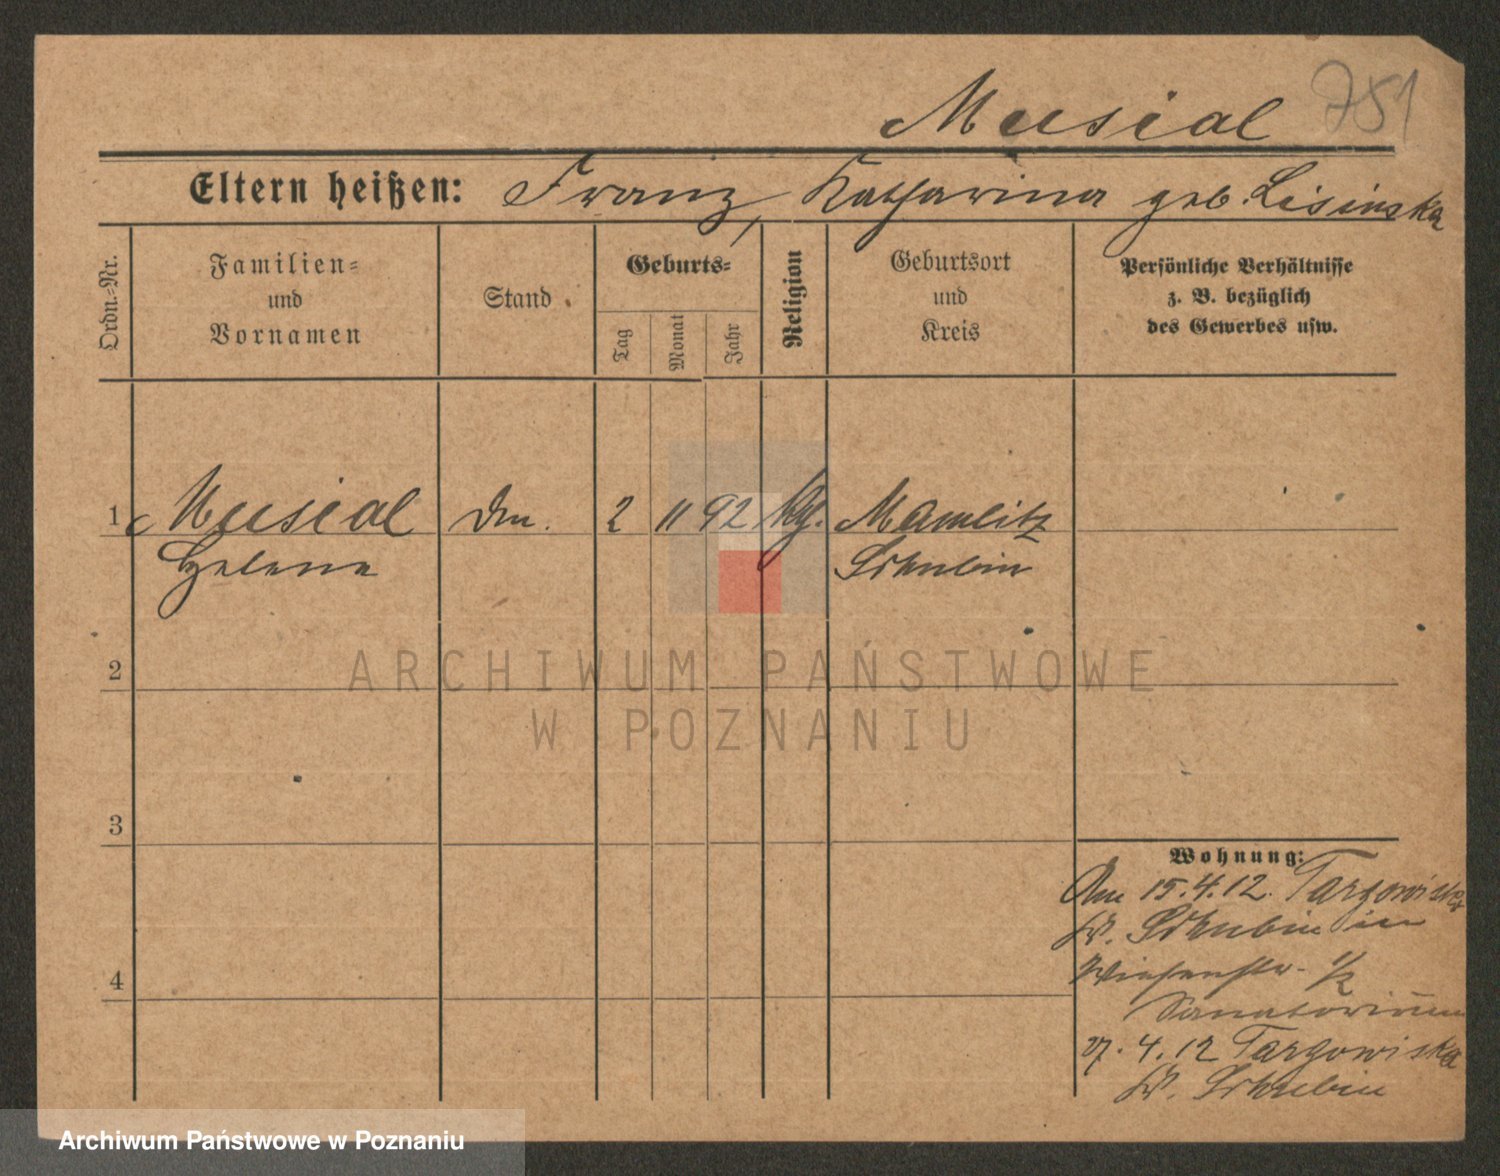 Musial 751
Eltern heißen: Franz, Katharina geb. Lisinska
Ordn.-Nr.
Familien-
und
Vornamen
Stand
Geburts-
Tag
Monat
Jahr
Religion
Geburtsort
und
Kreis
Persönliche Verhältnisse
z. B. bezüglich
des Gewerbes usw.
1 Musial 2 11 92 Mamlitz
Helene Schubin
2
3
4
Wohnung:
Am 15.4.12. Targowiska
Kr. Schubin in
Wiesenstr. 1/2
Sanatorium
27.4.12 Targowiska
Kr. Schubin
ARCHIWUM PAŃSTWOWE
W POZNANIU
Archiwum Państwowe w Poznaniu